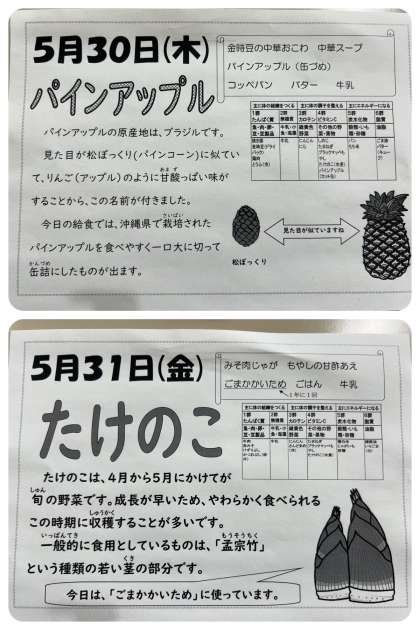 5月30日(木)
パインアップル
金時豆の中華おこわ 中華スープ
パインアップル(缶づめ)
コッペパン バター 牛乳
主に体の組織をつくる 主に体の調子を整える 主にエネルギーになる
1群 2群 3群 4群 5群 6群
たんぱく質 無機質 カロテン ビタミンC 炭水化物 脂質
パインアップルの原産地は、ブラジルです。
見た目が松ぼっくり(パインコーン)に似てい
て、りんご(アップル)のように甘酸っぱい味が
することから、この名前が付きました。
今日の給食では、沖縄県で栽培された
パインアップルを食べやすく一口大に切って
缶詰にしたものが出ます。
見た目が似ていますね
松ぼっくり
5月31日(金)
たけのこ
みそ肉じゃが もやしの甘酢あえ
ごまかかいため ごはん 牛乳
1年に1回
主に体の組織をつくる 主に体の調子を整える 主にエネルギーになる
1群 2群 3群 4群 5群 6群
たんぱく質 無機質 カロテン ビタミンC 炭水化物 脂質
たけのこは、4月から5月にかけてが
旬の野菜です。成長が早いため、やわらかく食べられる
この時期に収穫することが多いです。
一般的に食用としているものは、「孟宗竹」
という種類の若い茎の部分です。
今日は、「ごまかかいため」に使っています。